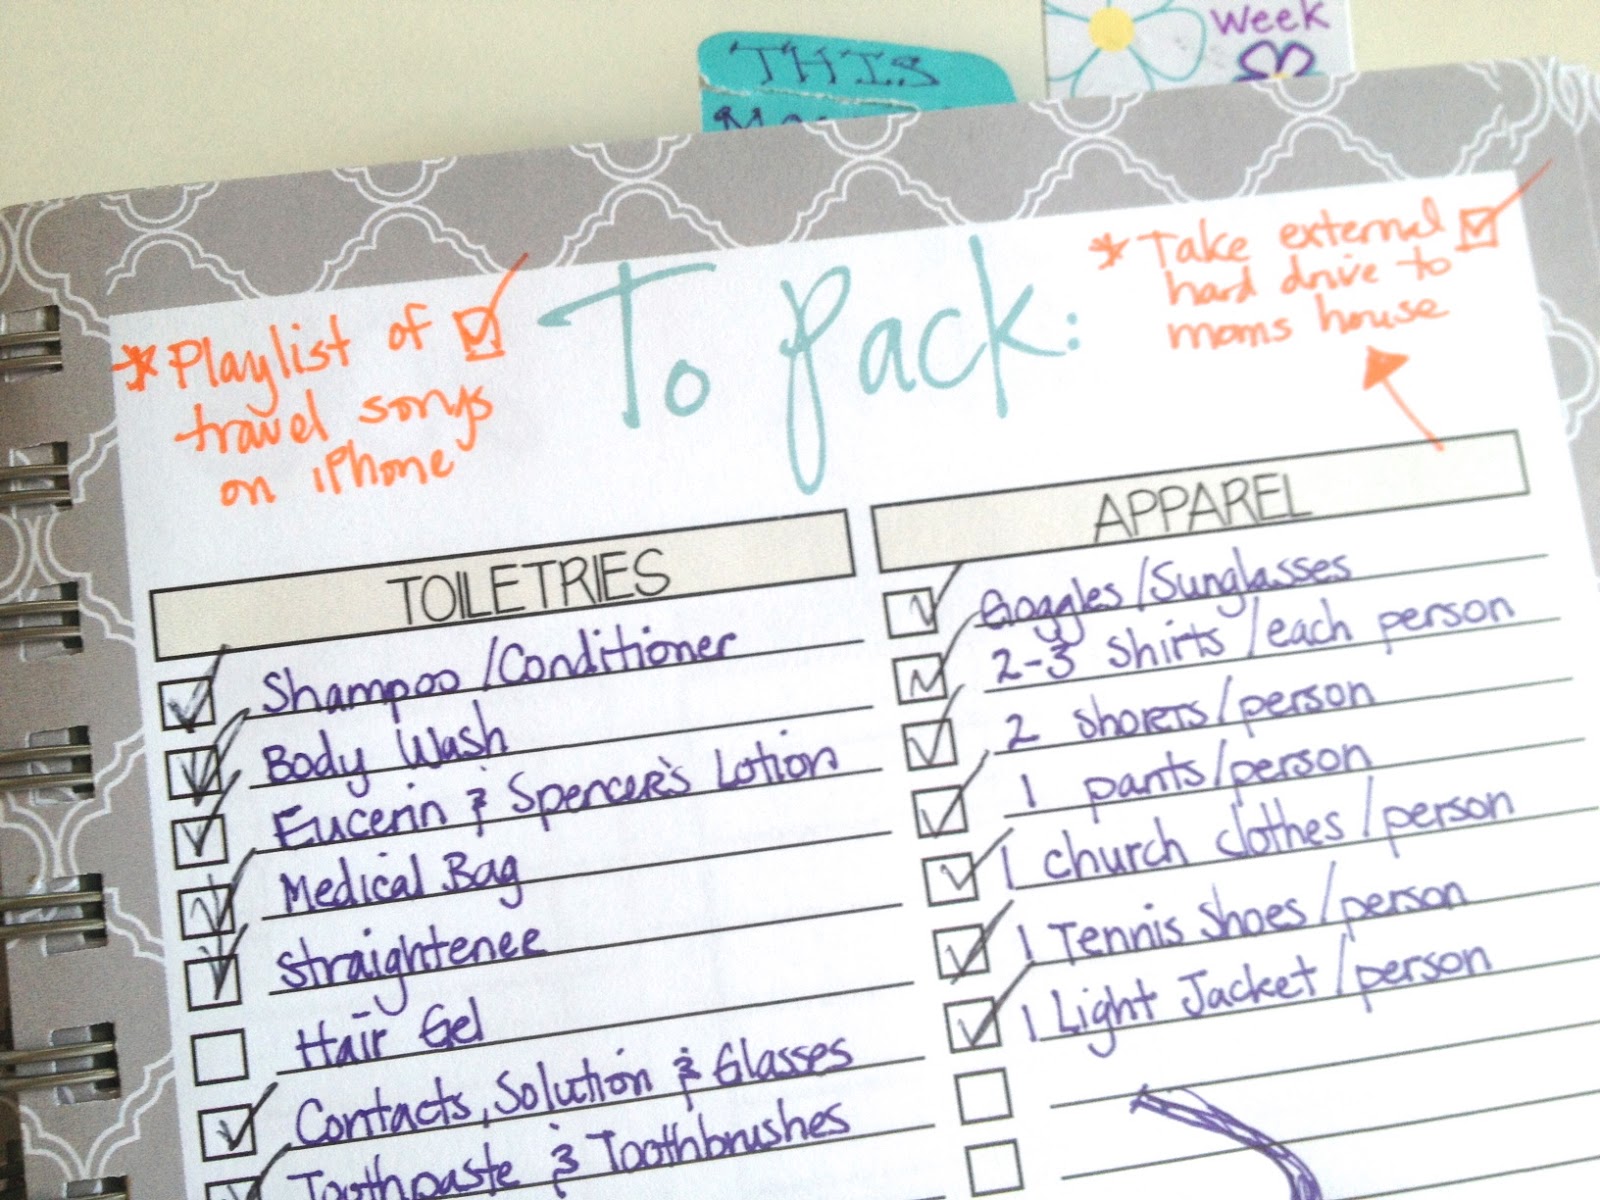 THIS
Week
* Playlist of
travel songs
on iPhone
To Pack:
* Take external
hard drive to
moms house
TOILETRIES
Shampoo/Conditioner
Body Wash
Eucerin & Spencer's Lotion
Medical Bag
Straightener
Hair Gel
Contacts, Solution & Glasses
Toothpaste & Toothbrushes
APPAREL
Goggles/Sunglasses
2-3 Shirts/each person
2 shorts/person
1 pants/person
1 church clothes/person
1 Tennis Shoes/person
1 Light Jacket/person